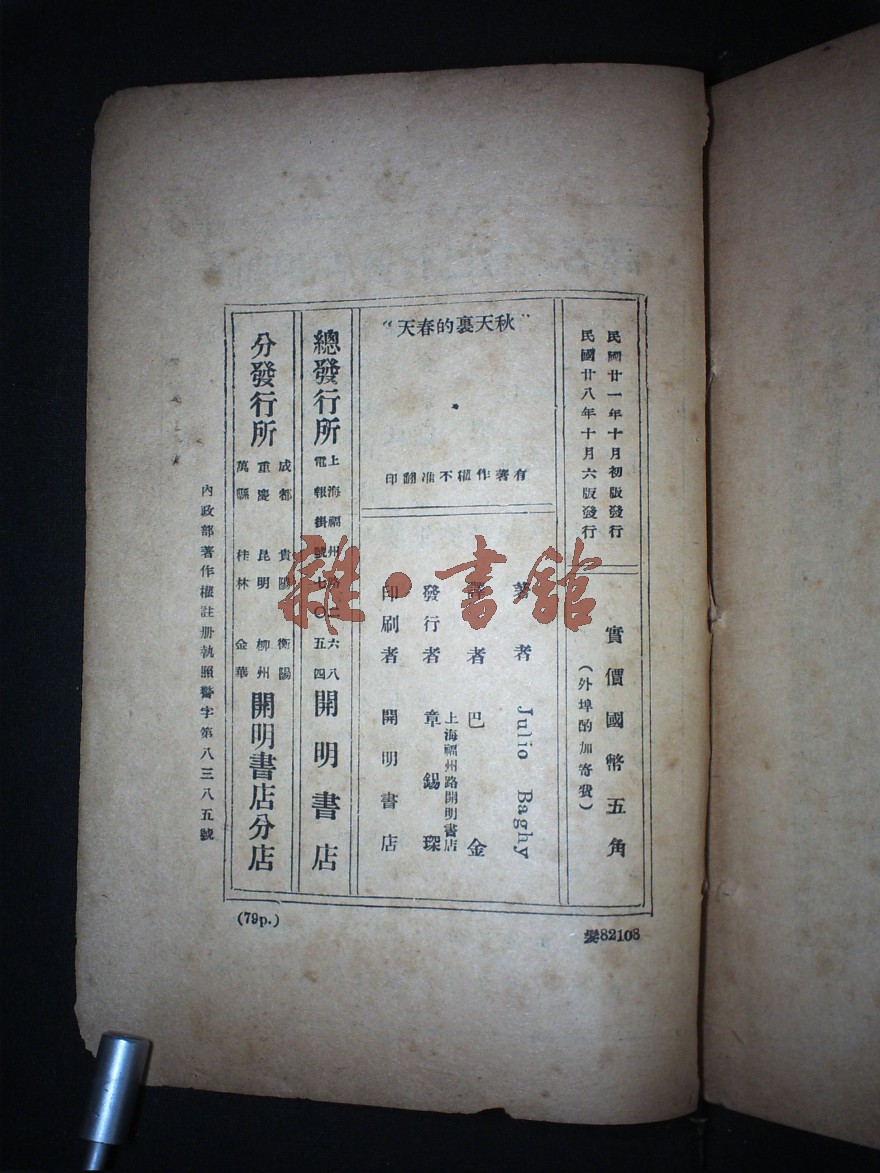 民國廿一年十月初版發行
民國廿八年十月六版發行
實價國幣五角
(外埠酌加寄費)
"秋天裏的春天"
有著作權不准翻印
著者 Julio Baghy
譯者 巴金
發行者 章錫琛
上海福州路開明書店
印刷者 開明書店
總發行所 上海福州路二六八 電報掛號七〇五四 開明書店
分發行所 成都 貴陽 衡陽 重慶 昆明 柳州 萬縣 桂林 金華 開明書店分店
內政部著作權註册執照警字第八三八五號
(79p.)
82108
雜·書館